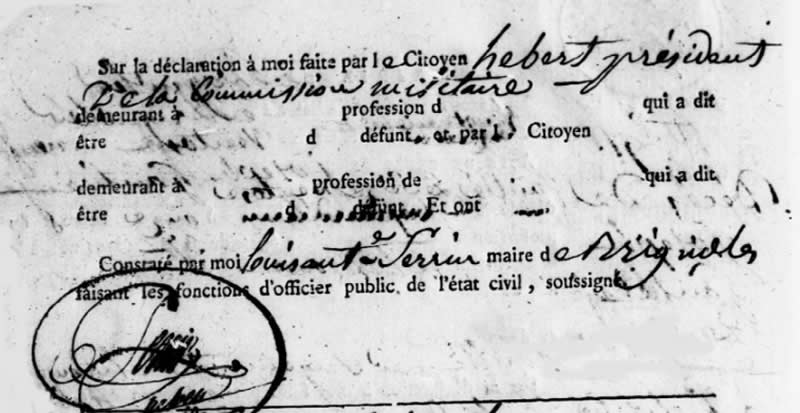 Sur la déclaration à moi faite par le Citoyen hebert président
De la Commission militaire
demeurant à profession d qui a dit
être d défunt, et par l Citoyen
demeurant à profession de qui a dit
être d défunt Et ont
Constaté par moi maire de Brignoles
faisant les fonctions d'officier public de l'état civil, soussigné